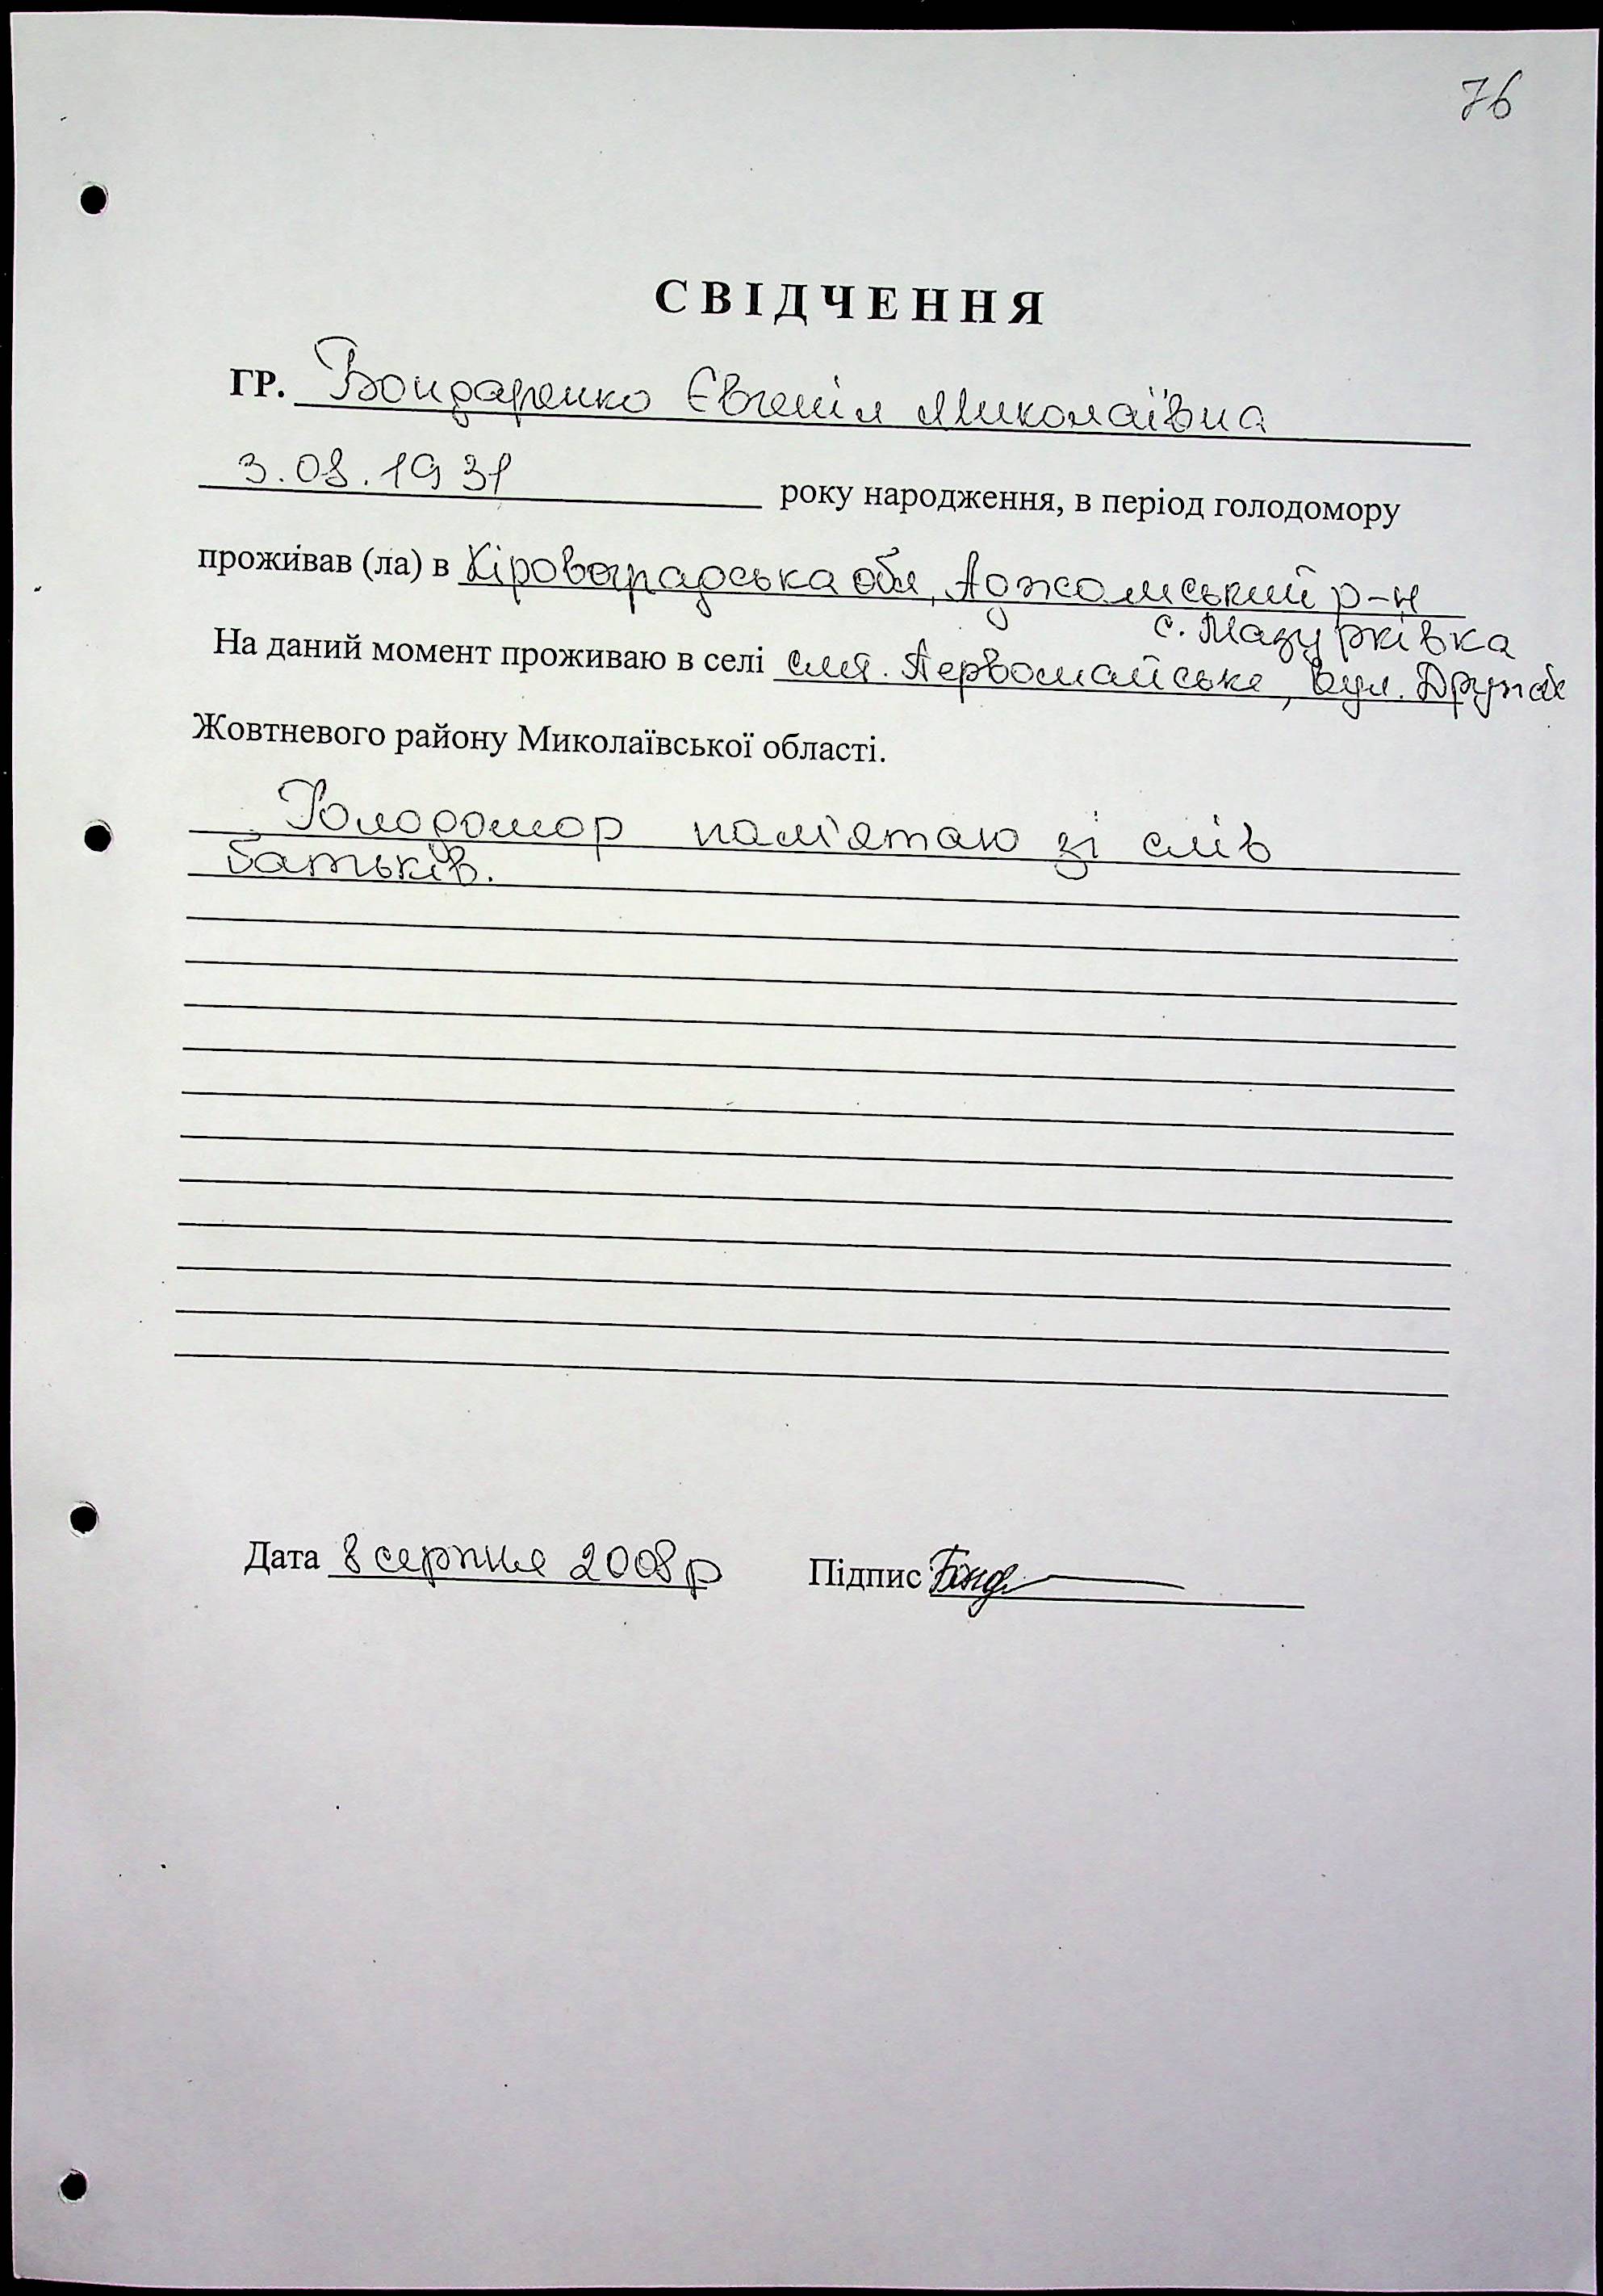 76
СВІДЧЕННЯ
ГР. Бондаренко Євгенія Миколаївна
3.08.1931 року народження, в період голодомору
проживав (ла) в Кіровоградська обл, Аджамський р-н
с. Мазурківка
На даний момент проживаю в селі смт. Первомайське, вул. Дружби
Жовтневого району Миколаївської області.
Голодомор пам'ятаю зі слів
батьків.
Дата 8 серпня 2008 р Підпис Бонд